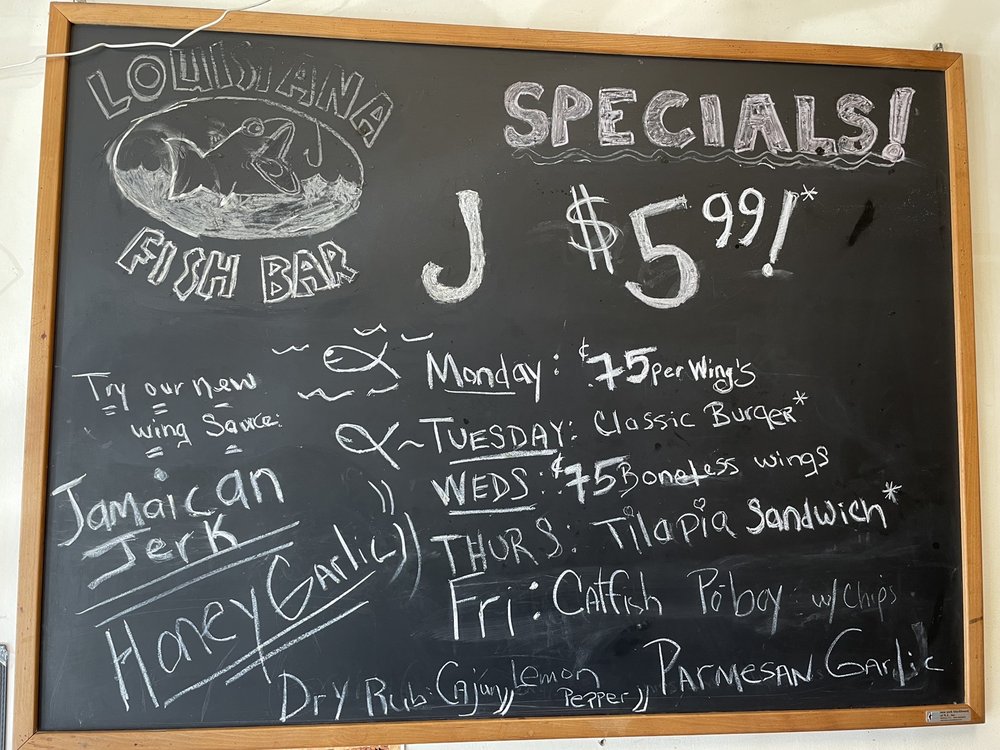 LOUISIANA
FISH BAR
SPECIALS!
J $5.99!*
Monday: ¢75 per Wing's
TUESDAY: Classic Burger*
WEDS: ¢75 Boneless wings
THURS: Tilapia Sandwich*
Fri: Catfish Po'boy w/ Chips
Try our new
wing Sauce:
Jamaican
Jerk
Honey Garlic))
Dry Rub: Cajun,, Lemon Pepper,, PARMESAN GARLIC